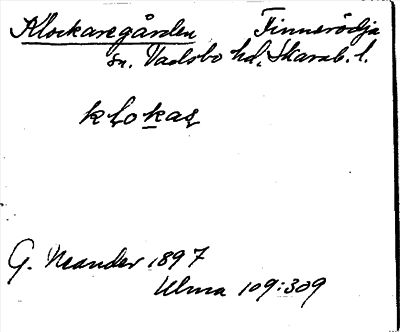 Klockaregården Finnerödja
sn. Vadsbo hd, Skarab. l.
G. Neander 1897
Ulma 109:309